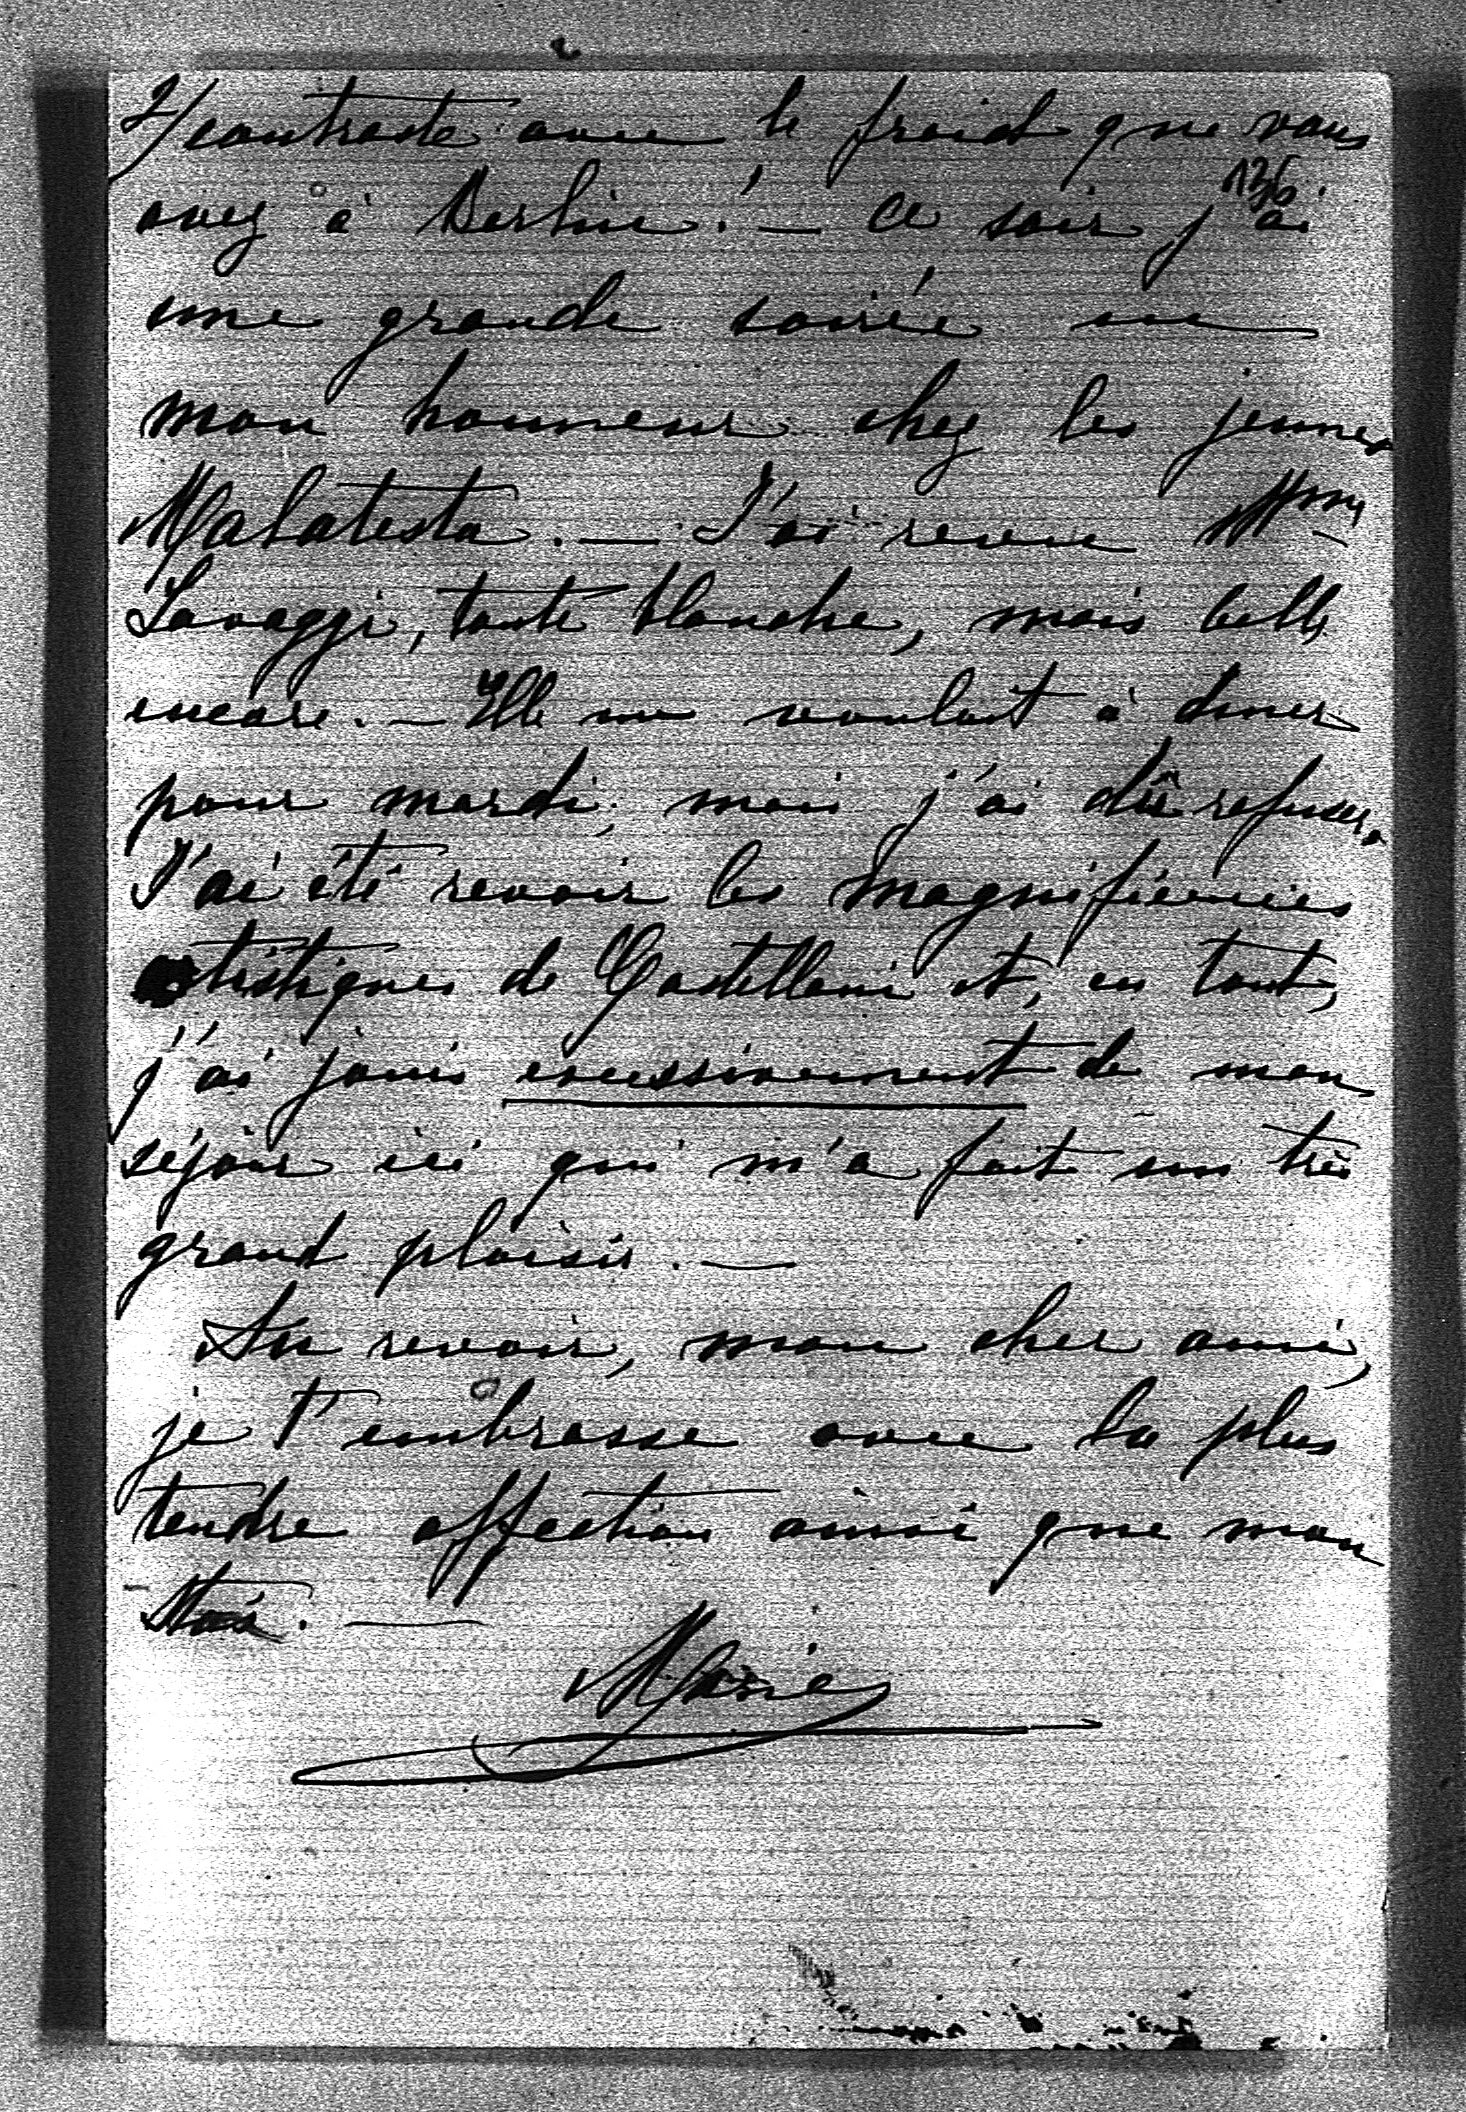 2/ contraste avec le froid que vous
136
avez à Berlin. — Ce soir j'ai
une grande soirée en
mon honneur chez les jeunes
Malatesta. — J'ai revu Mme
Lavaggi, toute blanche, mais belle
encore. — Elle me voulait à diner
pour mardi, mais j'ai dû refuser.
J'ai été revoir les magnificences
artistiques de Castellani et, en tout,
j'ai joui excessivement de mon
séjour ici qui m'a fait un très
grand plaisir. —
Au revoir, mon cher ami,
je t'embrasse avec la plus
tendre affection ainsi que mon
Marie